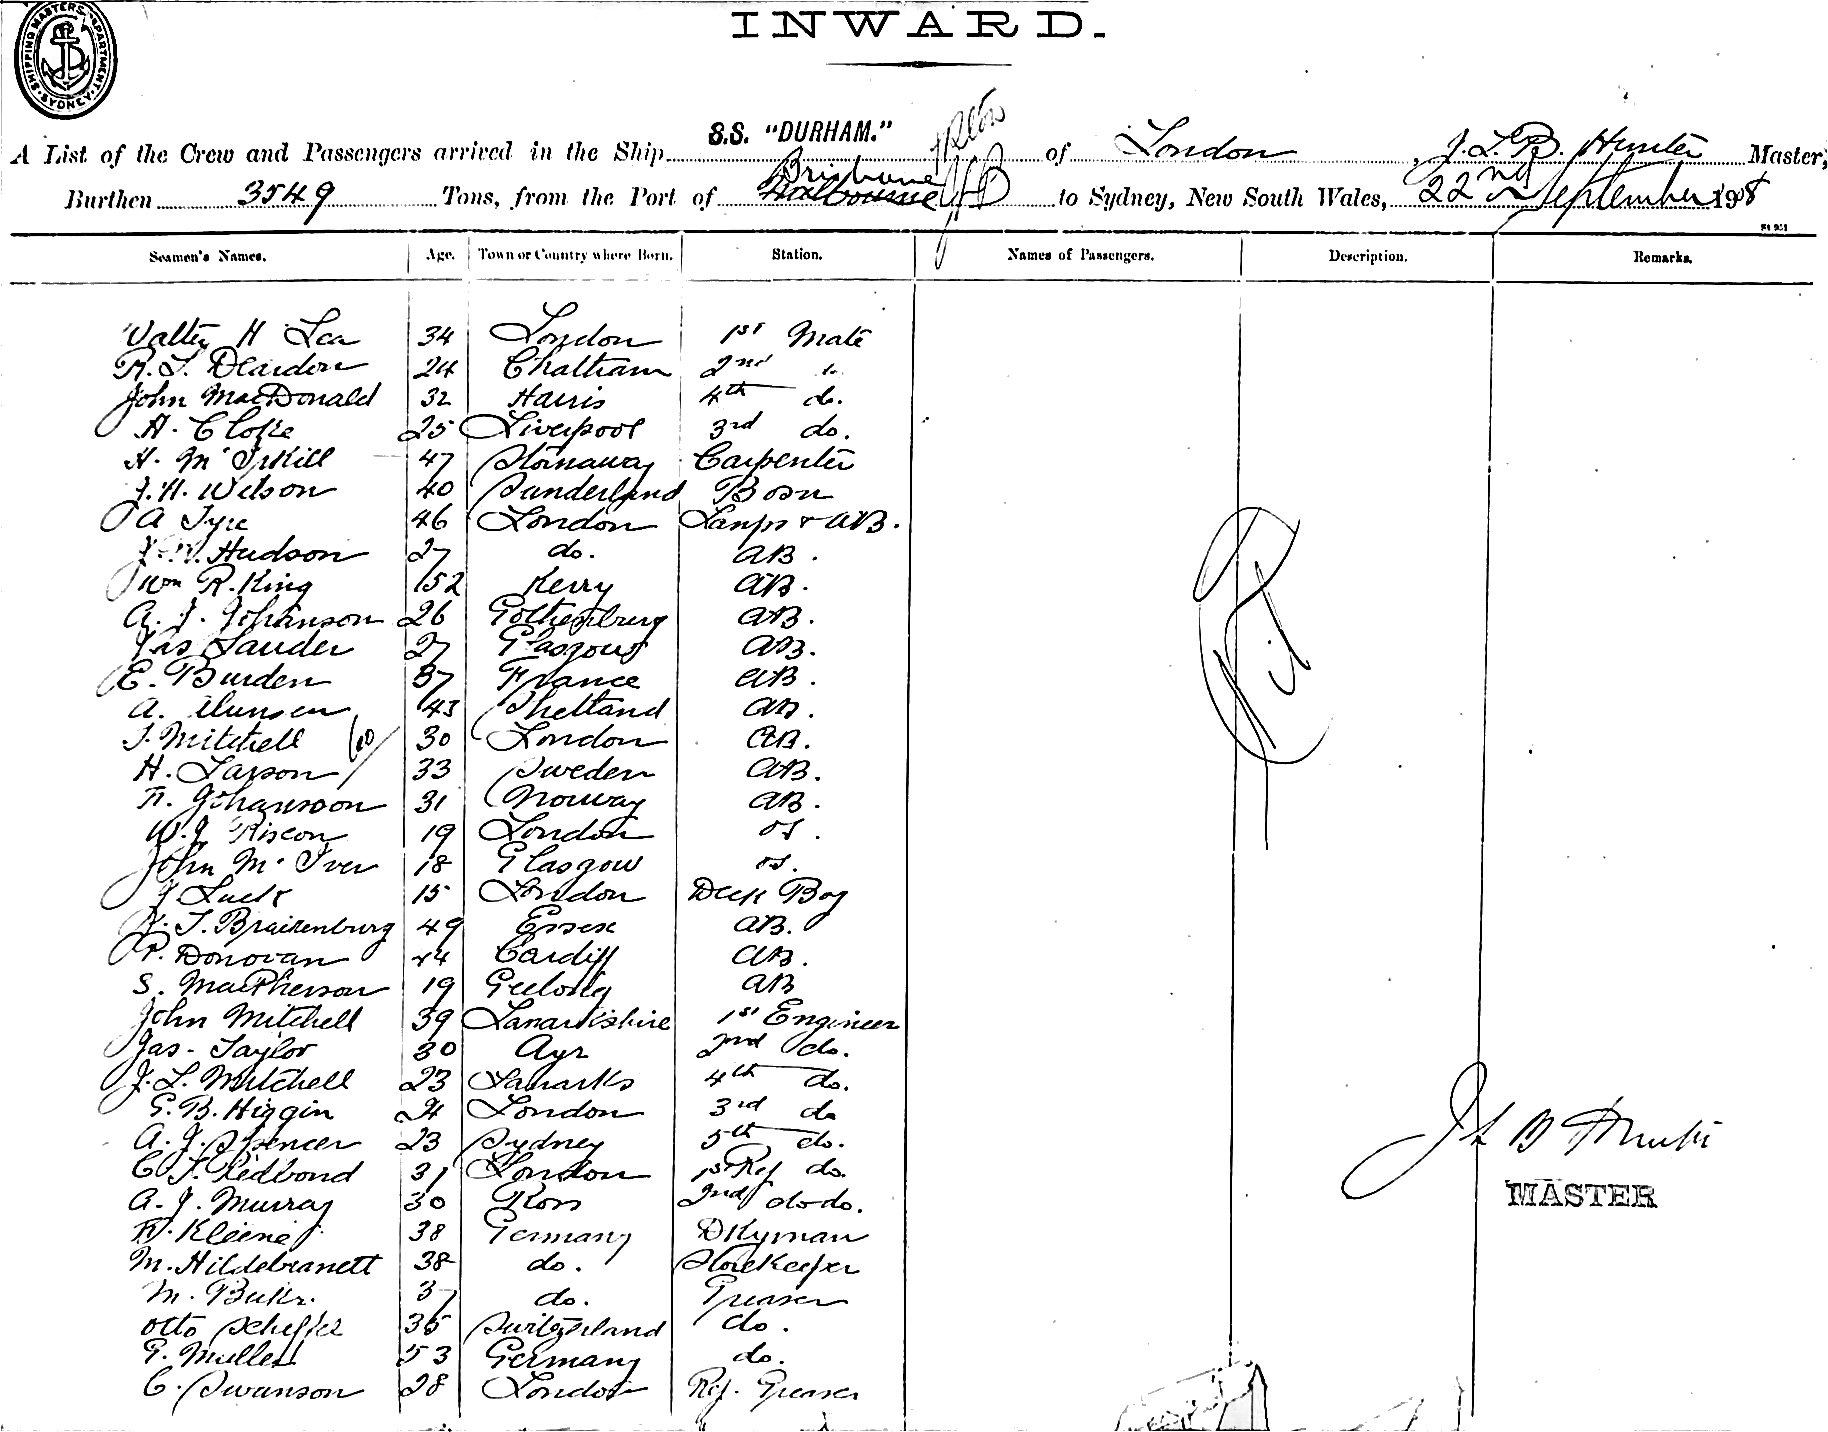 SHIPPING MASTERS DEPARTMENT SYDNEY
INWARD.
A List of the Crew and Passengers arrived in the Ship S.S. "DURHAM." of London, J. L. B. Hunter Master,
Burthen 3549 Tons, from the Port of Brisbane Melbourne to Sydney, New South Wales, 22nd September 1908
Seamen's Names. Age. Town or Country where Born. Station. Names of Passengers. Description. Remarks.
Walter H Lea 34 London 1st Mate
R. L. Deardon 24 Chatham 2nd
John MacDonald 32 Harris 4th do.
H. Cloke 25 Liverpool 3rd do.
H. Mc 47 Stornaway Carpenter
J. H. Wilson 40 Sunderland Bosn
A Tyre 46 London Lamps & AB.
Hudson 27 do. AB.
Wm R. King 52 Kerry AB.
A. J. Johanson 26 Gothenburg AB.
Jas Lauder 27 Glasgow AB.
E. Burden 37 France AB.
A. 43 Shetland AB.
J. Mitchell 30 London AB.
H. Larson 33 Sweden AB.
Johansson 31 Norway AB.
W. J. Riscon 19 London OS.
John Mc Iver 18 Glasgow OS.
J Luck 15 London Deck Boy
Braizenburg 49 Essex AB.
P. Donovan 24 Cardiff AB.
S. MacPherson 19 Geelong AB
John Mitchell 39 Lanarkshire 1st Engineer
Jas. Taylor 30 Ayr 2nd do.
J. L. Mitchell 23 Lanarks 4th do.
G. B. Higgin 24 London 3rd do
A. J. Spencer 23 Sydney 5th do.
C. J. Redbond 31 London 1st Ref do.
A. J. Murray 30 Ross 2nd do do.
Kleine 38 Germany DKyman
M. Hildebranett 38 do. Storekeeper
M. 37 do. Greaser
Otto Scheffer 35 Switzerland do.
G. Muller 53 Germany do.
C. Swanson 28 London Ref. Greaser
Nil
J L B Hunter
MASTER